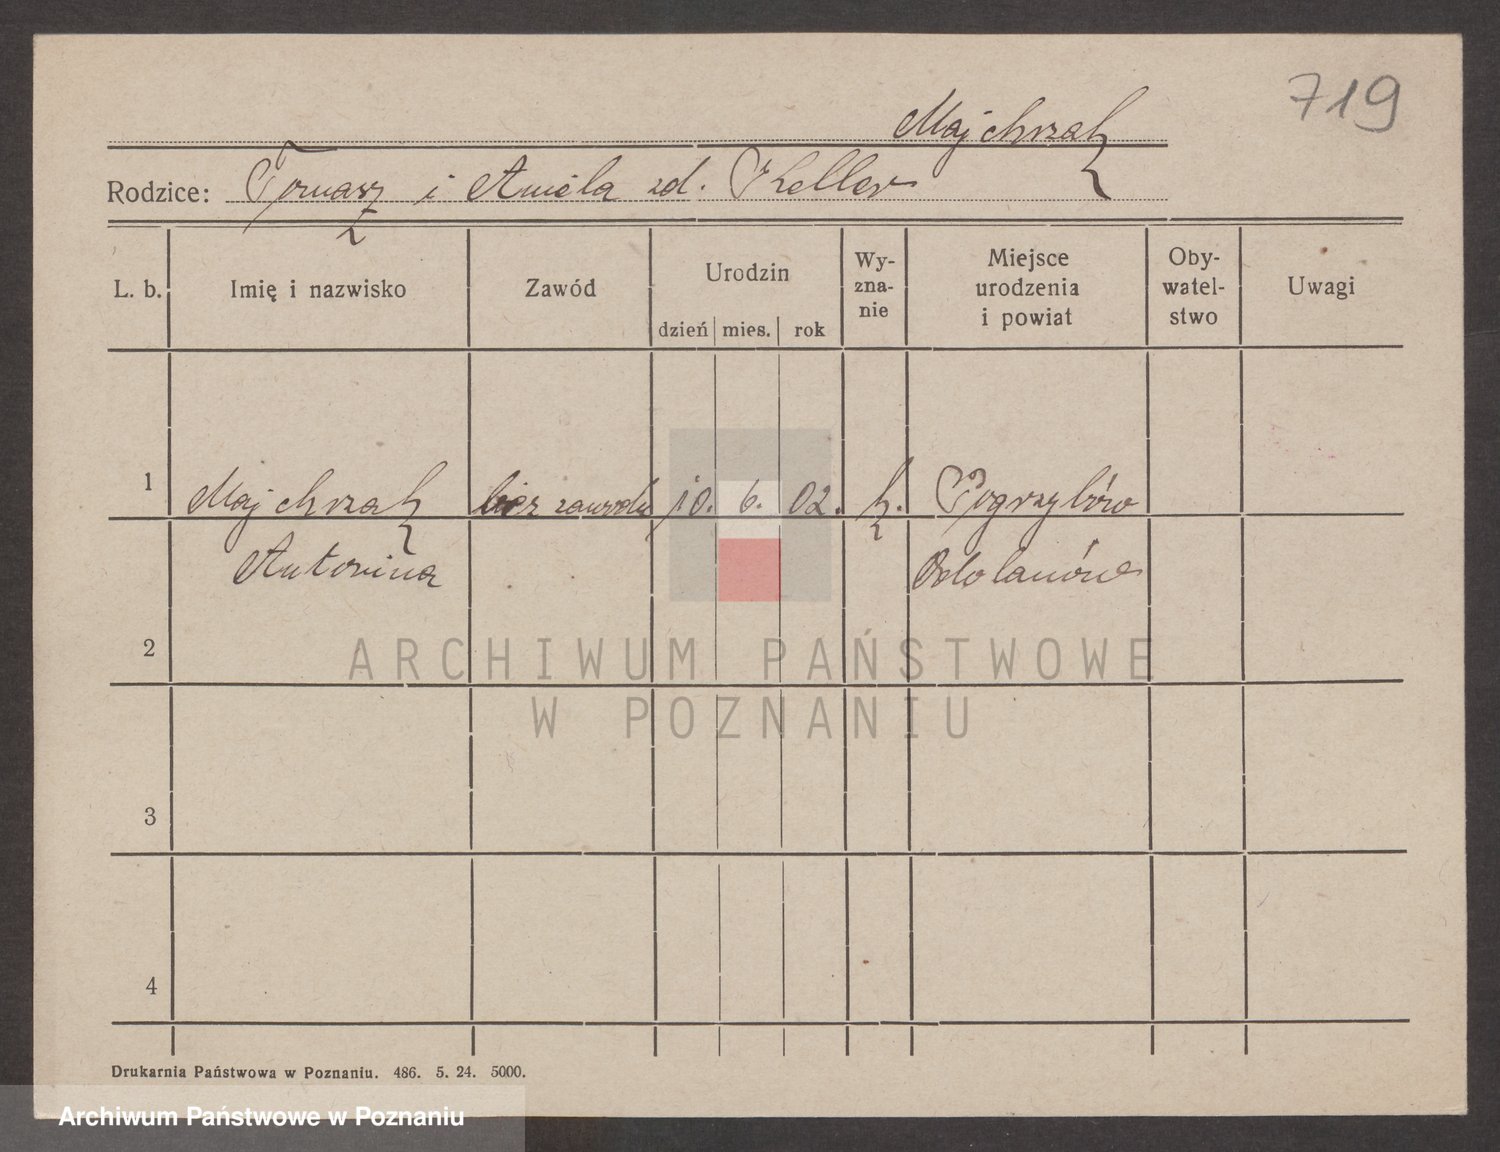 719
Majchrzak
Rodzice: Tomasz i Amela zd. Keller
L. b. Imię i nazwisko Zawód Urodzin dzień mies. rok Wy-zna-nie Miejsce urodzenia i powiat Oby-watel-stwo Uwagi
1 Majchrzak bez zawodu 10. 6. 02. k. Pogrzybów
Antonina Odolanów
2
ARCHIWUM PAŃSTWOWE
W POZNANIU
3
4
Drukarnia Państwowa w Poznaniu. 486. 5. 24. 5000.
Archiwum Państwowe w Poznaniu